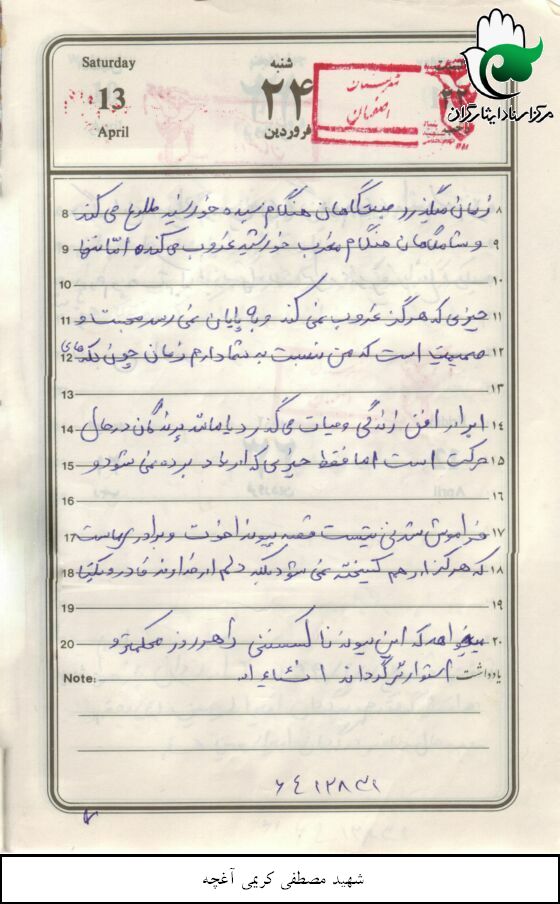 Saturday
13
April
شنبه
۲۴
فروردین
شهرستان
اصفهان
مرکز اسناد ایثارگران
8 زمان میگذرد صبحگاهان هنگام سپیده خورشید طلوع می کند ۸
9 و شامگاهان هنگام مغرب خورشید غروب می کند اما تنها ۹
10 ۱۰
11 چیزی که هرگز غروب نمی کند و به پایان نمی رسد محبت و ۱۱
12 صمیمیت است که من نسبت به شما دارم زمان چون لکه های ۱۲
13 ۱۳
14 ابر از افق زندگی و حیات می گذرد یا مانند پرندگان در حال ۱۴
15 حرکت است اما فقط چیزی که از یاد برده نمی شود و ۱۵
16 ۱۶
17 فراموش شدنی نیست قصه پیوند اخوت و برادری ماست ۱۷
18 که هرگز از هم گسیخته نمی شود بلکه دلم از خداوند قادر و یکتا ۱۸
19 ۱۹
20 میخواهد که این پیوند ناگسستنی را هر روز محکمتر و ۲۰
Note: استوارتر گرداند انشاءاله یادداشت
شهید مصطفی کریمی آغچه